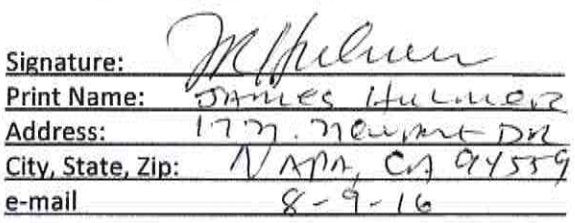 Signature:
Print Name: JAMES HULMER
Address: 177 . Newport DR
City, State, Zip: NAPA, CA 94559
e-mail 8-9-16